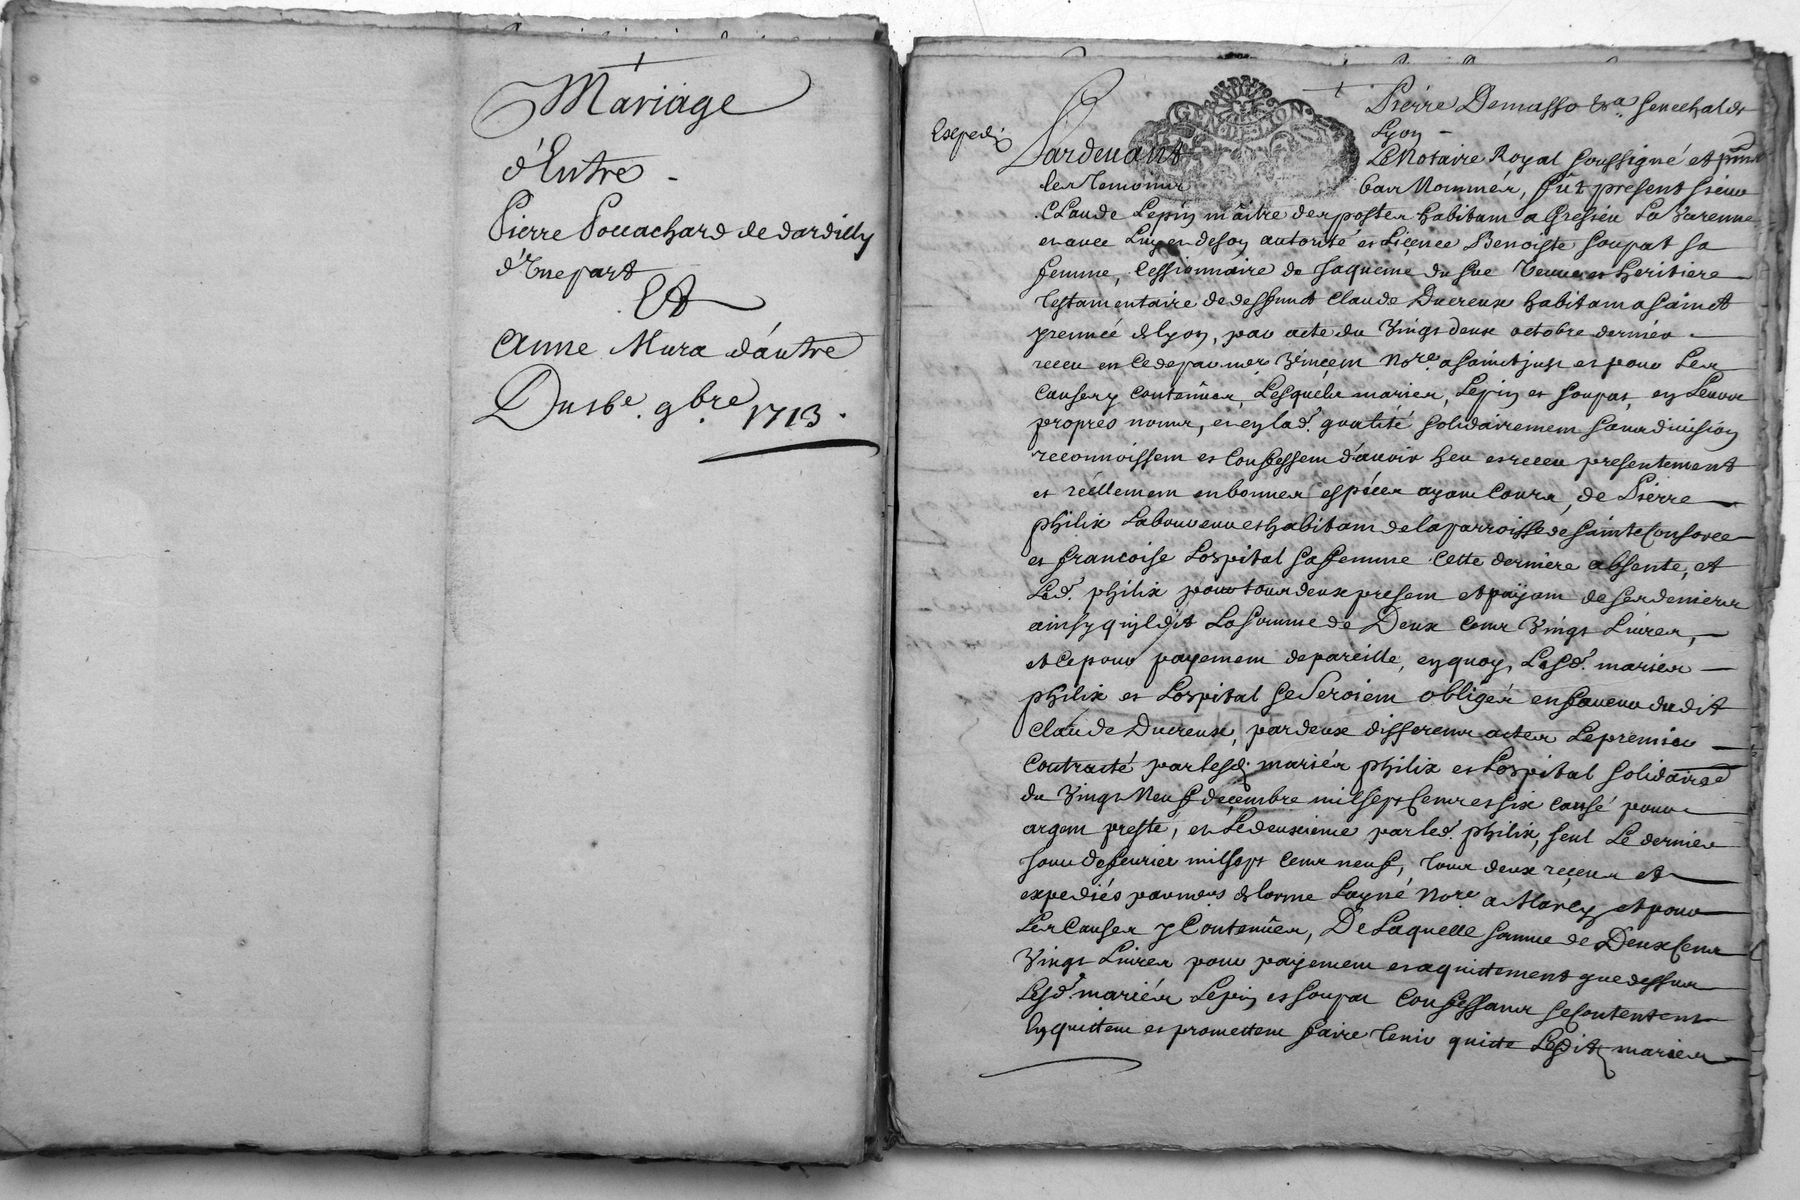 Mariage
d'Entre -
Pierre Pouachard de dardilly
d'Une part
Et
Anne Mura d'autre
Du 16e. 9bre. 1713.
GEN DE LION
Pierre Demasso &a. Senechal de
Lyon -
Expedi.
Pardevant Le Notaire Royal soussigné et
les Temoins bas Nommés, fût present sieur
Claude Lepin maitre des postes habitant a Gresieu La Varenne
et avec Luy et de son autorité et Licence Benoiste Soupat sa
femme, Cessionnaire de Jaqueme du Sue Veuve et heritiere
Testamentaire de deffunct Claude Ducreux habitant a sainct
yrennée de lyon, par acte du Vingt deux octobre dernier -
receu et Cede par me. Vincent Nore. a sainct just et pour Les
Causes y Contenües, Lesquels mariés, Lepin et Soupat, en Leurs
propres noms, et en lad. qualité solidairement sans division
reconnoissent et Confessent d'avoir heu et receu presentement
et réellement en bonnes espéces ayant Cours, de Pierre
philix Laboureur et habitant de la parroisse de sainte Consorce
et francoise Lospital sa femme Cette derniere absente, et
Led. philix pour tous deux present et payant de ses deniers
ainsy qu'il dit La somme de Deux Cens Vingt Livres,
et Ce pour payement de pareille, en quoy, Lesd. mariés
philix et Lospital se seroient obligés en faveur du dit
Claude Ducreux, par deux differens actes Le premier
Contracté par lesd. mariés philix et Lospital solidaire
du Vingt Neuf decembre mil sept Cens et six causé pour
argent presté, et Le deuxieme par led. philix, seul Le dernier
Jour de fevrier mil sept Cens neuf, Tous deux receus et
expediés par me. delorme Layné Nore. a Marcy et pour
Les Causes y Contenües, De Laquelle somme de Deux Cens
Vingt Livres pour payement et aquittement que dessus
Lesd. mariés Lepin et Soupat Confessans se Contentent
En quittent et promettent faire Tenir quitte Lesdits mariés